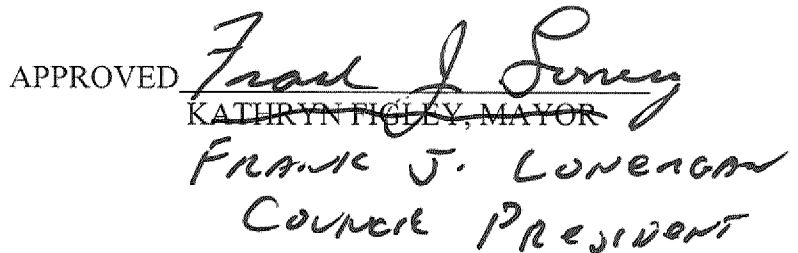 APPROVED Frank J Lonergan
KATHRYN FIGLEY, MAYOR
FRANK J. LONERGAN
COUNCIL PRESIDENT